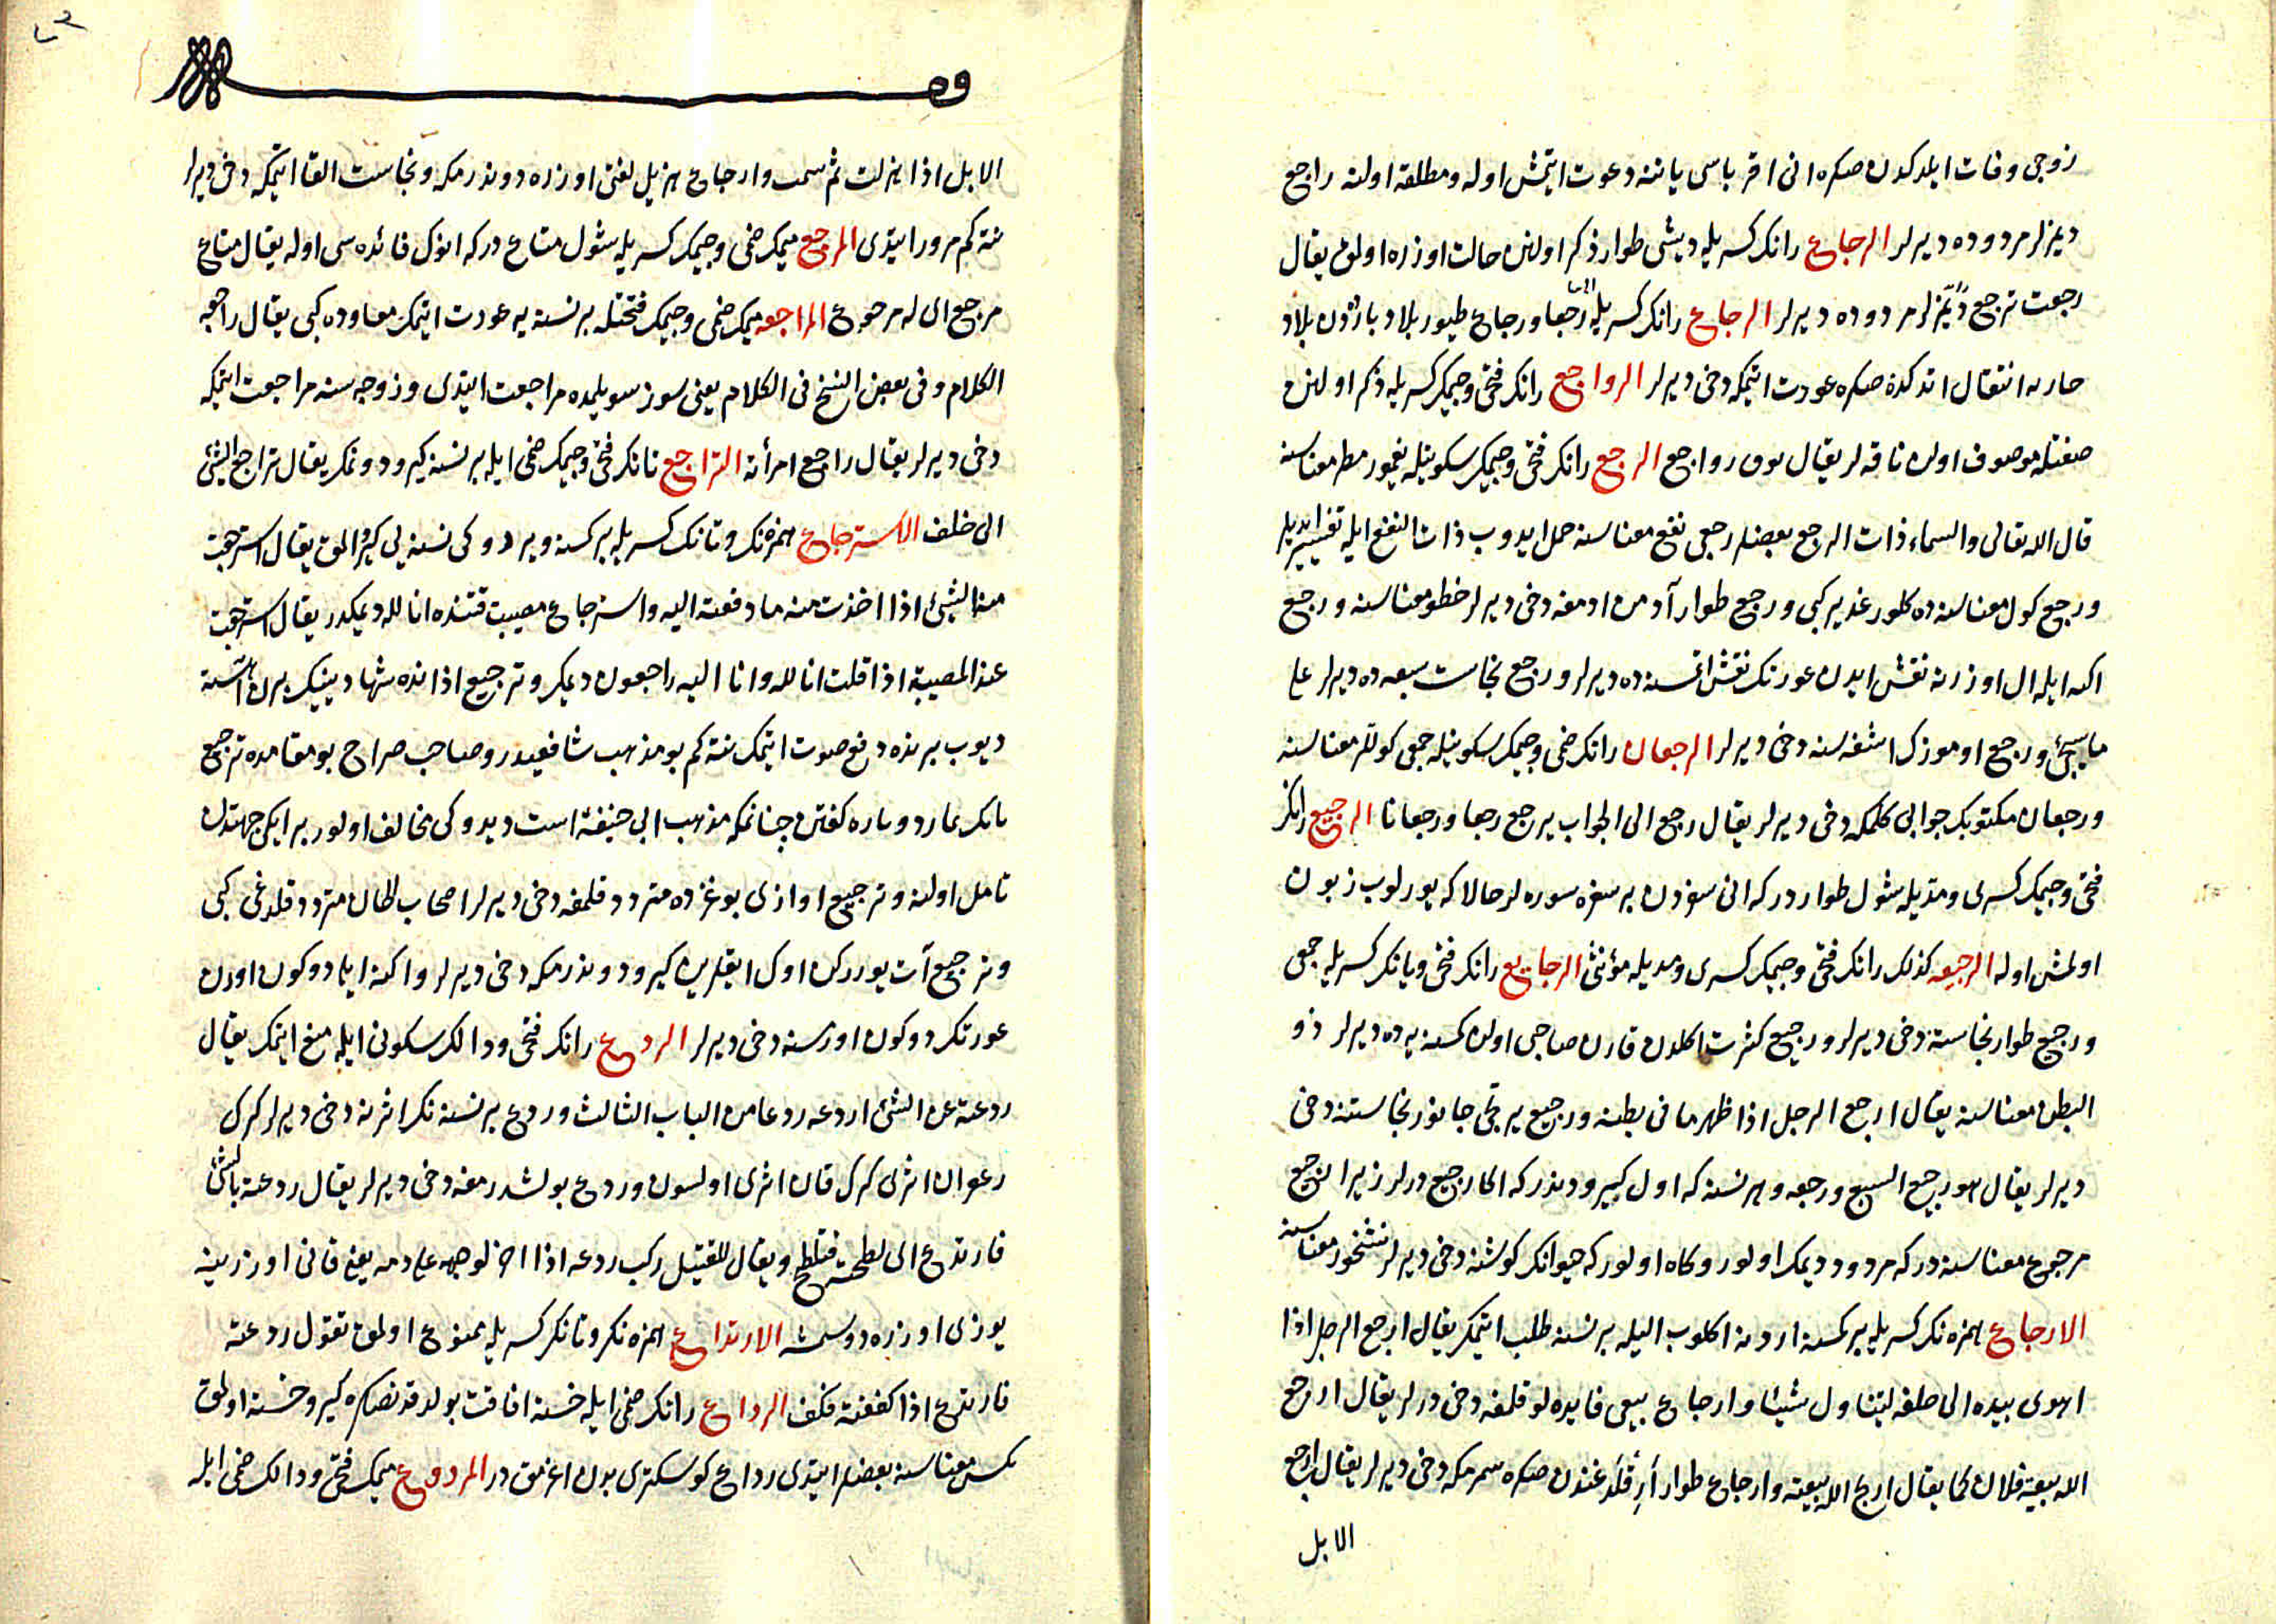 زوجی وفات ایلدکدن صکره انی اقرباسی یاننه دعوت ایتمش اوله ومطلقه اولنه راجع
دیمزلر مردوده دیرلر الرجاع رانک کسریله دیشی طوار ذکر اولنن حالت اوزره اولمق یقال
رجعت ترجع دیمزلر مردوده دیرلر الرجاع رانک کسریله رجعا ورجاع طیور بلاد بارده‌دن بلاد
حاره انتقال اتدکدن صکره عودت ایتمکه دخی دیرلر الرواجع رانک فتحی وجیمک کسریله ذکر اولنن
صفتله موصوف اولن ناقه لر یقال نوق رواجع الرجع رانک فتحی وجیمک سکونیله یغمور مطر معناسنه
قال الله تعالی والسماء ذات الرجع بعضلر رجعی نفع معناسنه حمل ایدوب ذات النفع ایله تفسیر ایدیلر
ورجع کول معناسنه ده کلور غدیر کبی ورجع طوار آدمن ادمغه دخی دیرلر خطو معناسنه ورجع
اکنه ایله ال اوزرنه نقش ایدن عورتک نقش اتمسنه ده دیرلر ورجع نجاست سبعه ده دیرلر علی
ماسیجئ ورجع اوموزک اشغه سنه دخی دیرلر الرجعان رانک ضمی وجیمک سکونیله جمعی کوللر معناسنه
ورجعان مکتوبک جوابی کلمکه دخی دیرلر یقال رجع الی الجواب یرجع رجعا ورجعانا الرجیع رانک
فتحی وجیمک کسری ومدیله شول طوار درکه انی سفردن بر سفره سوره لر حالا که یورلوب زبون
اولمش اوله الرجیعه کذلک رانک فتحی وجیمک کسری ومدیله مؤنثی الرجایع رانک فتحی ویانک کسریله جمعی
ورجیع طوار نجاسته دخی دیرلر ورجیع کثرت اکلدن قارن صاحبی اولن کسنه یه ده دیرلر ذو
البطن معناسنه یقال ارجع الرجل اذا ظهر ما فی بطنه ورجیع یرتجی جانور نجاستنه دخی
دیرلر یقال هو رجیع السبع ورجعه وهر نسنه که اول کیرو دونذر که اکا رجیع درلر زیرا الرجیع
مرجوع معناسنه در که مردود دیمک اولور وکاه اولور که حیوانک کوشنه دخی دیرلر نشخور معناسنه
الارجاع همزه نک کسریله بر کسنه اردنه اکلوب الیله بر نسنه طلب ایتمک یقال ارجع الرجل اذا
اهوی بیده الی خلفه لیتناول شیئا وارجاع بیعی فایده لو قلمغه دخی درلر یقال ارجع
الله بیعة فلان کما یقال اربح الله بیعته وارجاع طوار ارقلدغندن صکره سمرمکه دخی دیرلر یقال ارجع
الابل
الابل اذا هزلت ثم سمنت وارجاع هزیل لغتی اوزره دونذرمکه ونجاست القا ایتمکه دخی دیرلر
نته کم مرور ایتدی المرجع میمک ضمی وجیمک کسریله شول متاع درکه انوک فائده سی اوله یقال متاع
مرجع ای له مرجوع المراجعه میمک ضمی وجیمک فتحتله بر نسنه یه عودت ایتمک معاوده کبی یقال راجعه
الکلام وفی بعض النسخ فی الکلام یعنی سوز سویلمده مراجعت ایتدی وزوجه سنه مراجعت ایتمکه
دخی دیرلر یقال راجع امرأته التراجع تانک فتحی وجیمک ضمی ایله بر نسنه کیرو دونمک یقال تراجع الشئ
الی خلف الاسترجاع همزه نک وتانک کسریله بر کسنه ویردوکی نسنه یی کیرو المق یقال استرجعت
منه الشئ اذا اخذت منه ما دفعته الیه واسترجاع مصیبت قتنده انا لله دیمکدر یقال استرجعت
عند المصیبة اذا قلت انا لله وانا الیه راجعون دیمکر وترجیع اذانده شهادتینک برن آهسته
دیوب برنده رفع صوت ایتمک نته کم بو مذهب شافعیدر وصاحب صراح بو مقامده ترجیع
بانک نماز دوباره کفتن چنانکه مذهب ابی حنیفه است دیدوکی مخالف اولور بر ایکی جهتدن
تامل اولنه وترجیع اوازی بوغزده متردد قلمغه دخی دیرلر اصحاب الحان متردد قلدغی کبی
وترجیع آت یوررکن اوک ایقلرین کیرو دونذرمکه دخی دیرلر واکنه ایله دوکون اورن
عورتک دوکون اورمسنه دخی دیرلر الردع رانک فتحی ودالک سکونی ایله منع ایتمک یقال
ردعته عن الشئ اردعه ردعا من الباب الثالث وردع بر نسنه نک اثرنه دخی دیرلر کرک
زعفران اثری کرک قان اثری اولسون وردع بولشدرمغه دخی دیرلر یقال ردعته بالشئ
فارتدع ای لطخته فتلطخ ویقال للقتیل رکب ردعه اذا خر لوجهه علی دمه یعنی قانی اوزرینه
یوزی اوزره دوسمش الارتداع همزه نک وتانک کسریله ممنوع اولمق تقول ردعته
فارتدع اذا کففته فکف الرداع رانک ضمی ایله خسته افاقت بولدقدنصکره کیرو خسته اولمق
نکس معناسنه بعضلر ایتدی رداع کوسکتری بدن اغرمق در المردوع میمک فتحی ودالک ضمی ایله